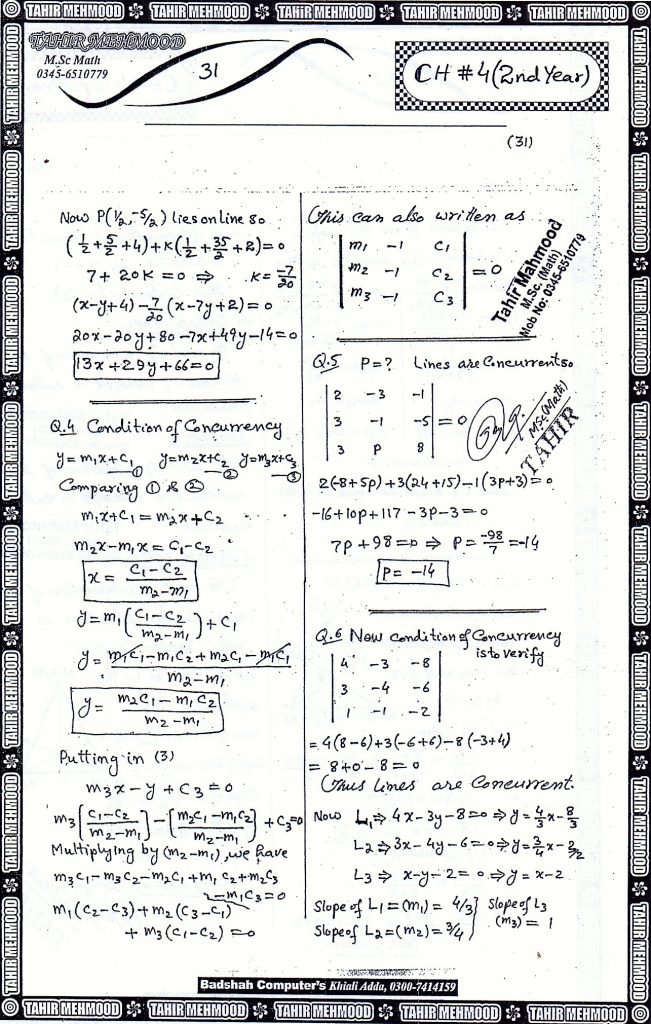 TAHIR MEHMOOD TAHIR MEHMOOD TAHIR MEHMOOD TAHIR MEHMOOD TAHIR MEHMOOD
TAHIR MEHMOOD
M.Sc Math
0345-6510779
31
CH # 4 (2nd Year)
(31)
Now P(1/2, -5/2) lies on line so
(1/2 + 5/2 + 4) + K(1/2 + 35/2 + 2) = 0
7 + 20K = 0 ⇒ K = -7/20
(x-y+4) -7/20 (x-7y+2) = 0
20x-20y+80-7x+49y-14=0
13x+29y+66=0
Q.4 Condition of Concurrency
y=m1x+c1 ① y=m2x+c2 ② y=m3x+c3 ③
Comparing ① & ②
m1x+c1 = m2x+c2
m2x-m1x = c1-c2
x = (c1-c2)/(m2-m1)
y=m1((c1-c2)/(m2-m1))+c1
y = (m1c1-m1c2+m2c1-m1c1)/(m2-m1)
y = (m2c1-m1c2)/(m2-m1)
Putting in (3)
m3x-y+c3=0
m3[(c1-c2)/(m2-m1)]-[(m2c1-m1c2)/(m2-m1)]+c3=0
Multiplying by (m2-m1), we have
m3c1-m3c2-m2c1+m1c2+m2c3
-m1c3=0
m1(c2-c3)+m2(c3-c1)
+m3(c1-c2)=0
This can also written as
| m1 -1 c1 |
| m2 -1 c2 | = 0
| m3 -1 c3 |
Tahir Mahmood
M.Sc. (Math)
Mob No: 0345-6510779
Q.5 P=? Lines are Concurrent so
| 2 -3 -1 |
| 3 -1 -5 | = 0
| 3 P 8 |
MSc(Math)
TAHIR
2(-8+5p)+3(24+15)-1(3p+3)=0
-16+10p+117-3p-3=0
7p+98=0 ⇒ P = -98/7 = -14
P = -14
Q.6 Now condition of Concurrency
is to verify
| 4 -3 -8 |
| 3 -4 -6 |
| 1 -1 -2 |
= 4(8-6)+3(-6+6)-8(-3+4)
= 8+0-8=0
Thus Lines are Concurrent.
Now L1⇒4x-3y-8=0⇒y=4/3x-8/3
L2⇒3x-4y-6=0⇒y=3/4x-3/2
L3⇒ x-y-2=0⇒y=x-2
Slope of L1=(m1)=4/3 } Slope of L3
Slope of L2=(m2)=3/4 } (m3)=1
Badshah Computer's Khiali Adda, 0300-7414159
TAHIR MEHMOOD TAHIR MEHMOOD TAHIR MEHMOOD TAHIR MEHMOOD TAHIR MEHMOOD